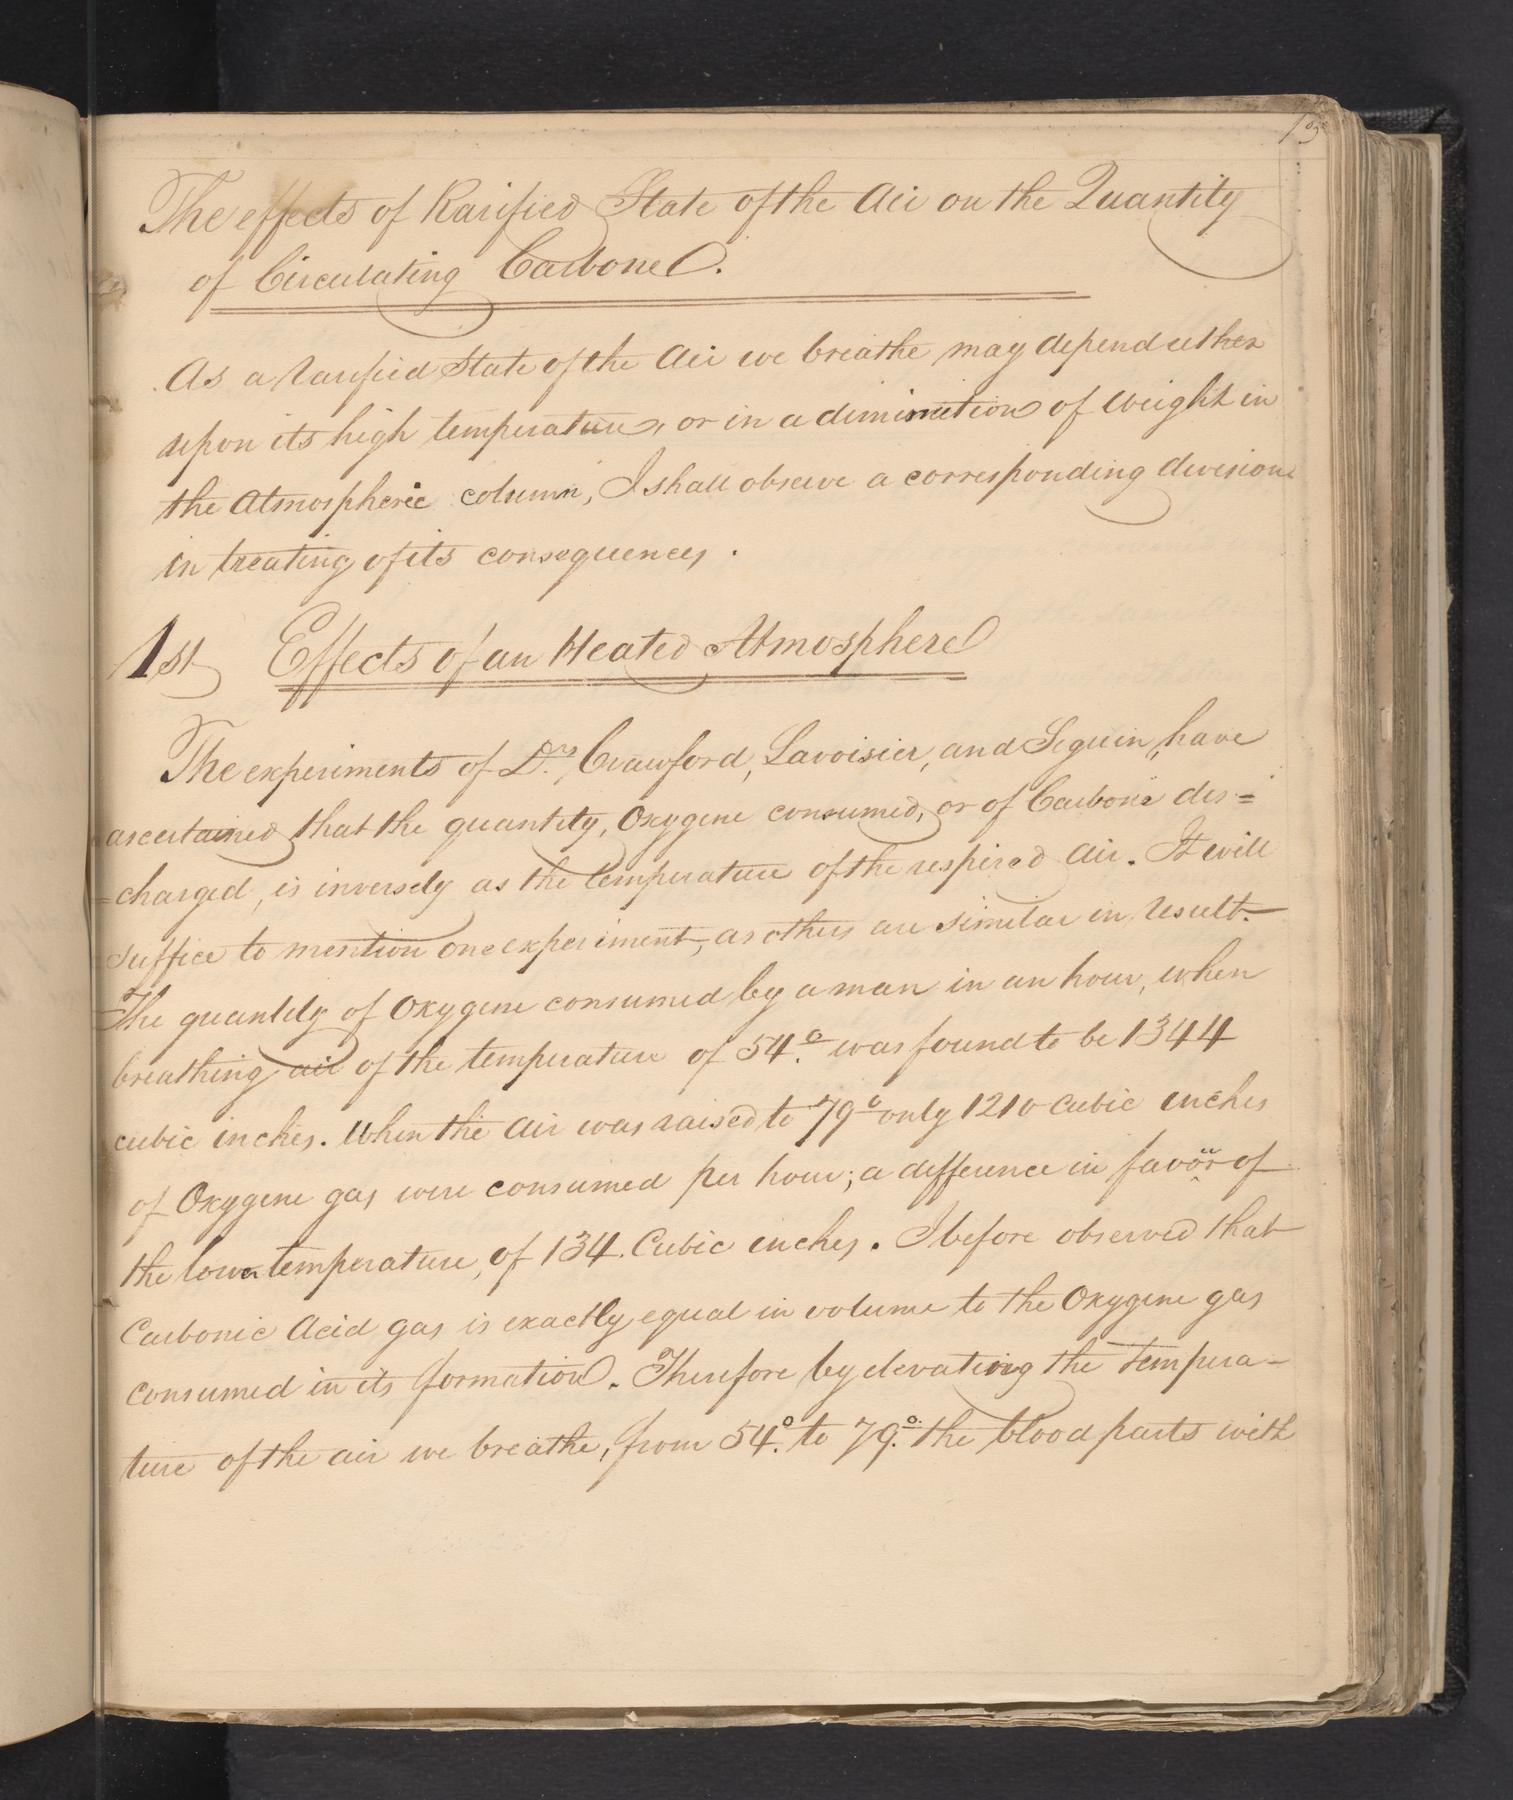 19
The effects of Rarified State of the Air on the Quantity
of Circulating Carbone.
As a rarified State of the Air we breathe may depend either
upon its high temperature, or in a diminution of weight in
the Atmospheric column, I shall observe a corresponding division
in treating of its consequences.
1st Effects of an Heated Atmosphere
The experiments of Drs. Crawford, Lavoisier, and Seguin, have
ascertained that the quantity, Oxygene consumed, or of Carbone dis=
=charged, is inversely as the temperature of the respired Air. It will
suffice to mention one experiment, as others are similar in result.
The quantity of Oxygene consumed by a man in an hour, when
breathing air of the temperature of 54.º was found to be 1344
cubic inches. When the Air was raised to 79º only 1210 cubic inches
of Oxygene gas were consumed per hour; a difference in favour of
the lower temperature, of 134. Cubic inches. I before observed that
Carbonic Acid gas is exactly equal in volume to the Oxygene gas
consumed in its formation. Therefore by elevating the tempera-
ture of the air we breathe, from 54.º to 79.º the blood parts with